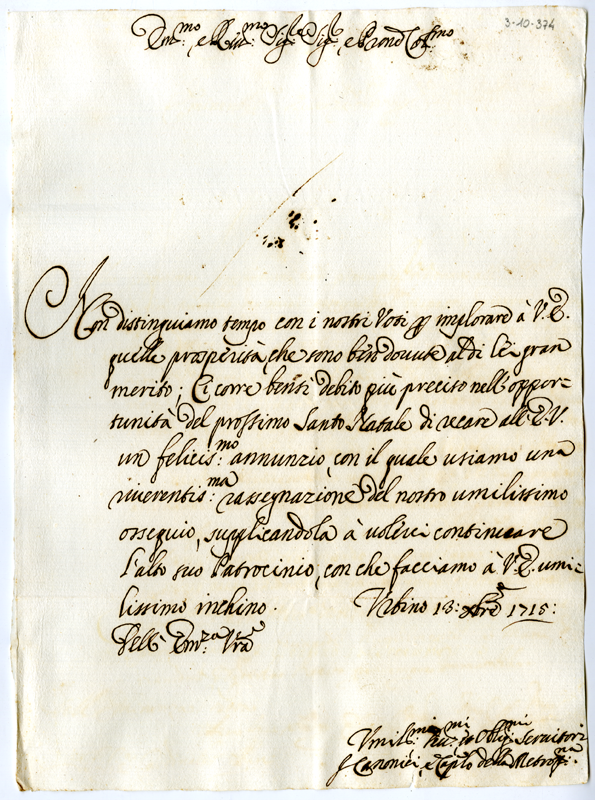 3-10-374
Em:mo e Rmo: Sig:r Sig:r e Pron Col:mo
Non distinguiamo tempo con i nostri Voti p implorare à V. E.
quelle prosperità, che sono ben dovute al di lei gran
merito; Ci corre bensì debito più preciso nell'oppor-
tunità del prossimo Santo Natale di recare all' E. V.
un felicis:mo annunzio, con il quale usiamo una
riverentis:ma rassegnazione del nostro umilissimo
ossequio, supplicandola à volerci continuare
l'alto suo Patrocinio, con che facciamo à V. E. umi-
lissimo inchino. Urbino 13: Xbre 1715:
Dell' Em:za Vra
Umil:mi et Oblig:mi Servitori
Canonici, e Caplo della Metrop:na